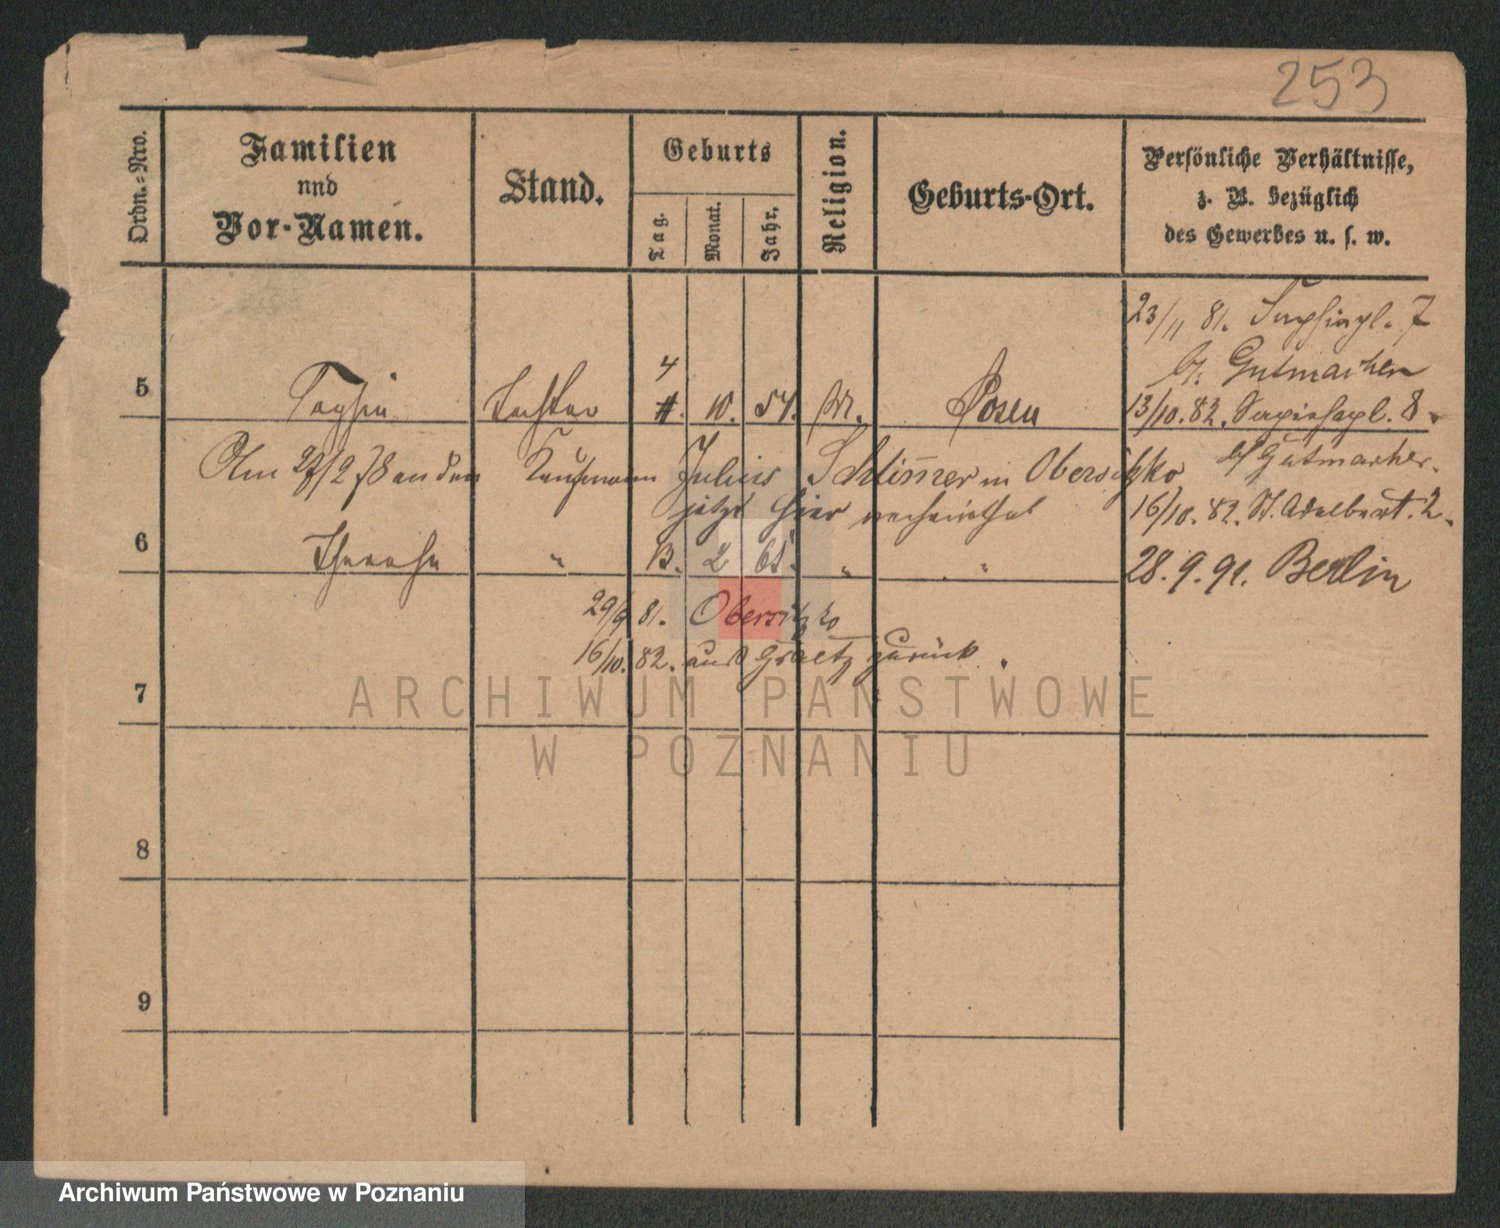 253
Ordn.-Nro.
Familien
nnd
Vor-Namen.
Stand.
Geburts
Tag.
Monat.
Jahr.
Religion.
Geburts-Ort.
Persönliche Verhältnisse,
z. B. bezüglich
des Gewerbes u. s. w.
23/11 81. 7
b/. Gutmacher
4
5 Sophie Tochter 10. 54. Posen
13/10. 82. Sapiehapl. 8.
Am 2 78 an den Kaufmann Julius in Obersitzko
b/ Gutmacher.
jetzt hier verheirathet
16/10. 82. St. Adalbert. 2.
6 " 13. 2 65. " "
28. 9. 91. Berlin
29/9 81. Obersitzko
16/10. 82. aus Graetz zurück.
7
8
9
ARCHIWUM PAŃSTWOWE
W POZNANIU
Archiwum Państwowe w Poznaniu